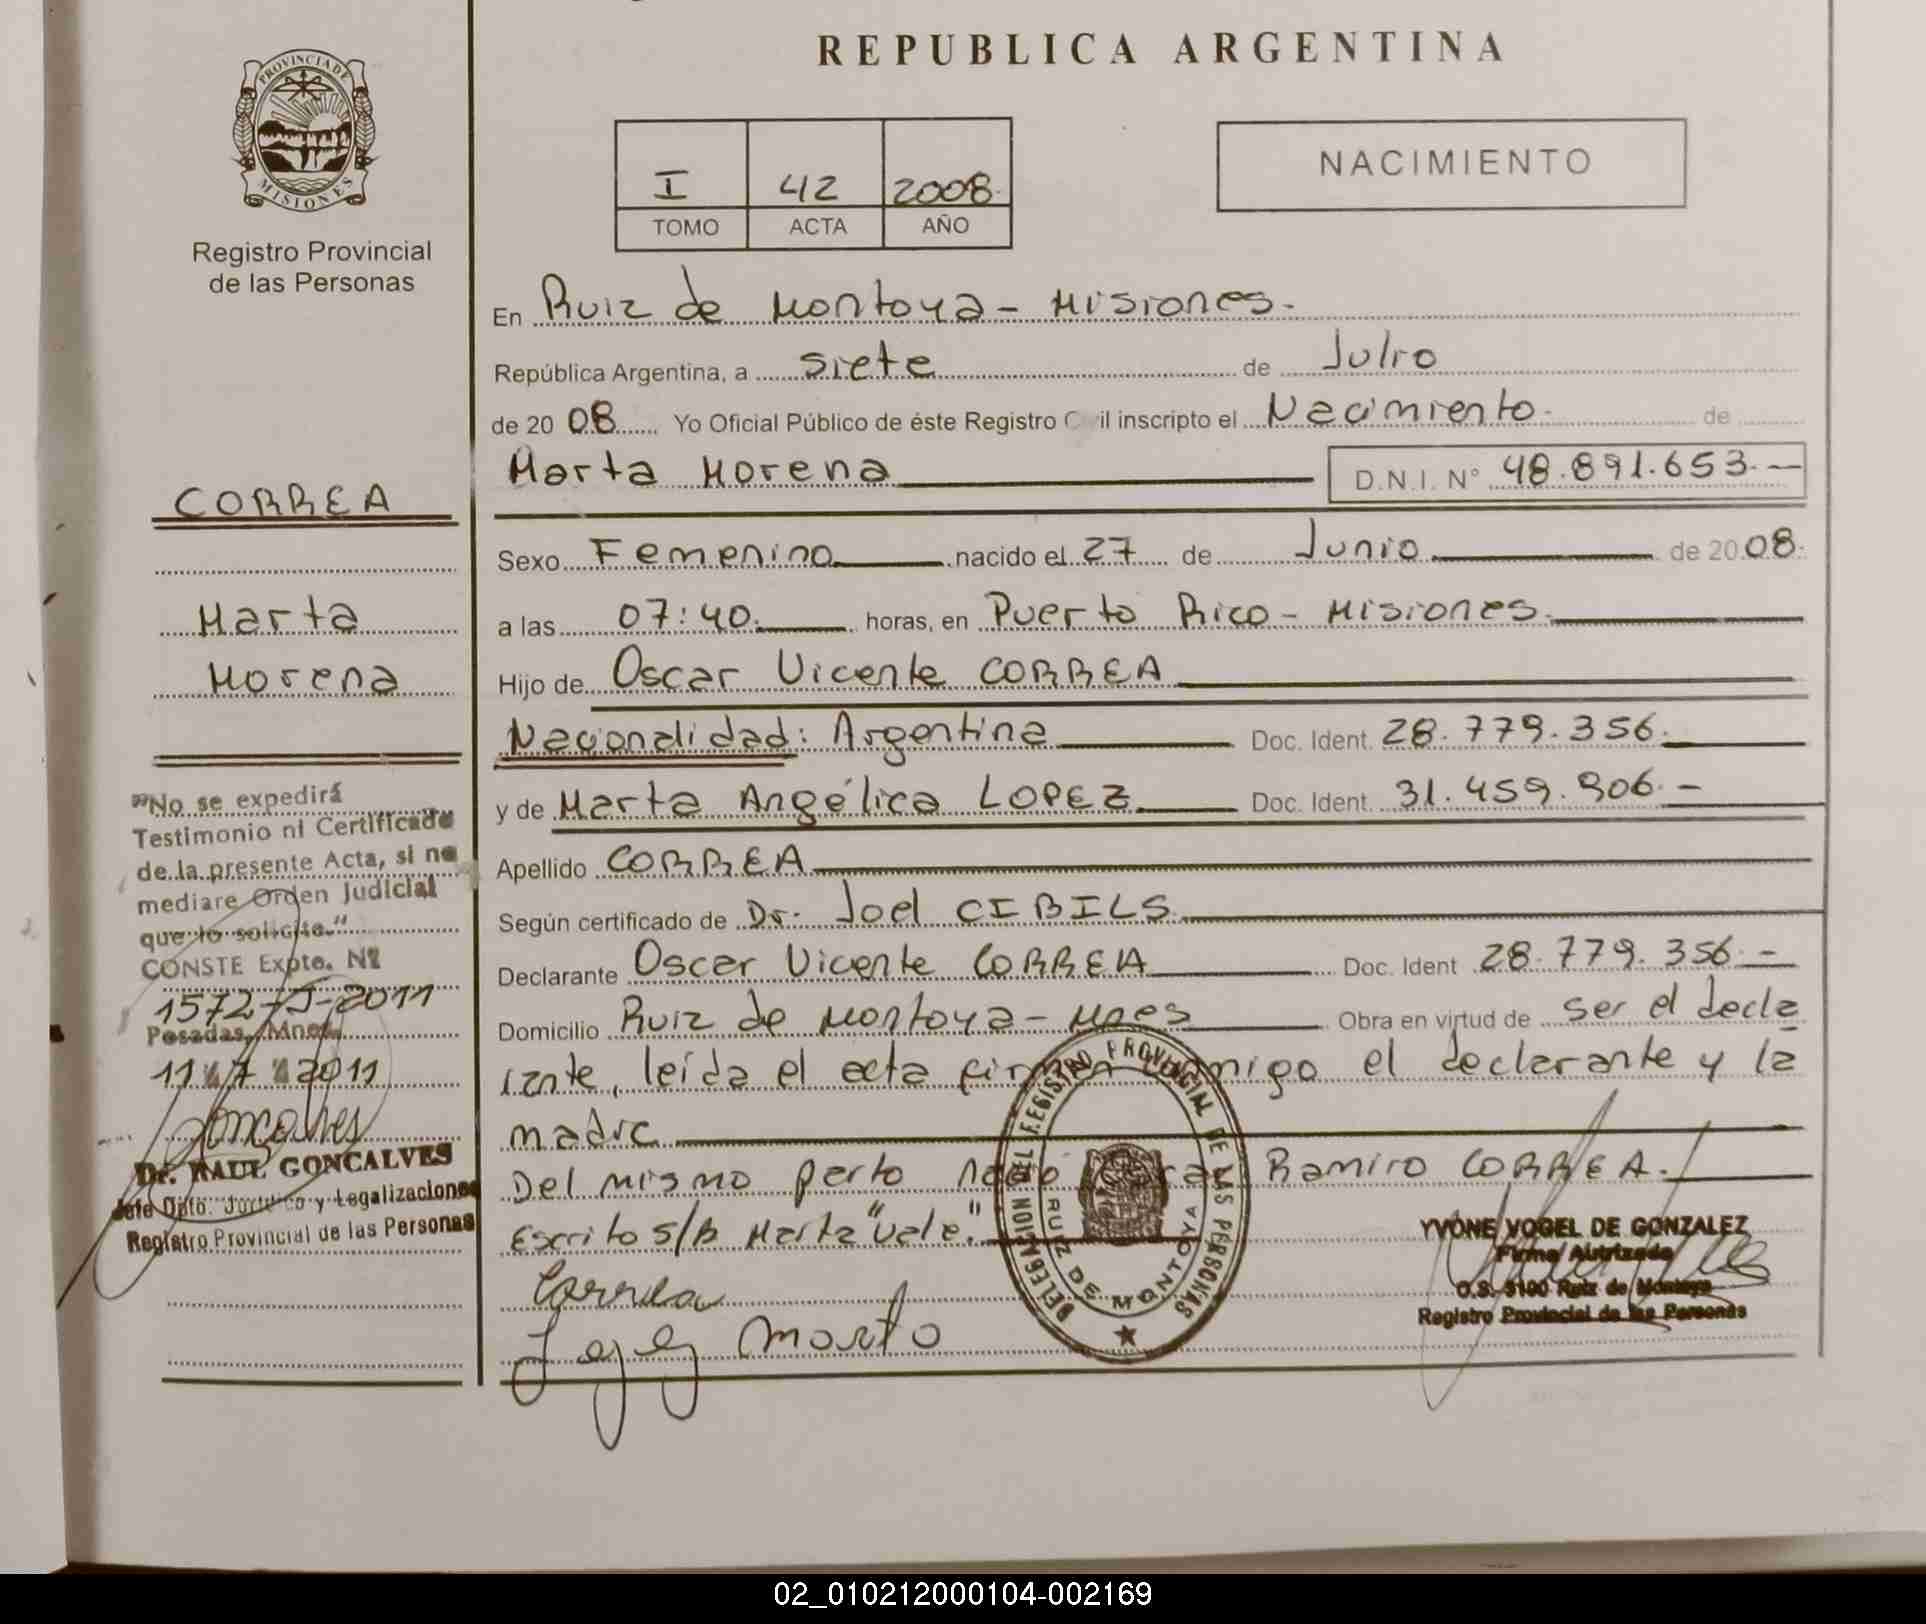 REPUBLICA ARGENTINA
PROVINCIA DE
MISIONES
Registro Provincial
de las Personas
I 42 2008
TOMO ACTA AÑO
NACIMIENTO
CORREA
Marta
Morena
"No se expedirá
Testimonio ni Certificado
de la presente Acta, si no
mediare Orden Judicial
que lo solicite."
CONSTE Expte. Nº
1572-J-2011
Posadas, Mnes.
11 7 2011
Goncalves
Dr. RAUL GONCALVES
Jefe Dpto. Jurídico y Legalizaciones
Registro Provincial de las Personas
En Ruiz de Montoya - Misiones.
República Argentina, a siete de Julio
de 2008 Yo Oficial Público de éste Registro Civil inscripto el Nacimiento. de
Marta Morena D.N.I. Nº 48.891.653.-
Sexo Femenino nacido el 27 de Junio de 2008.
a las 07:40. horas, en Puerto Rico - Misiones.
Hijo de Oscar Vicente CORREA
Nacionalidad: Argentina Doc. Ident. 28.779.356.
y de Marta Angélica LOPEZ Doc. Ident. 31.459.906.-
Apellido CORREA
Según certificado de Dr. Joel CIBILS
Declarante Oscar Vicente CORREA Doc. Ident 28.779.356.-
Domicilio Ruiz de Montoya - Mnes Obra en virtud de ser el decla
rante, leída el acta firman conmigo el declarante y la
madre
Del mismo parto nació Ramiro CORREA.
Escrito s/b Marta "Vale".
Correa
Marta
DELEGACION DEL REGISTRO PROVINCIAL DE LAS PERSONAS
RUIZ DE MONTOYA
YVONE VOGEL DE GONZALEZ
Firma Autrizada
O.S. 3100 Ruiz de Montoya
Registro Provincial de las Personas
02_010212000104-002169